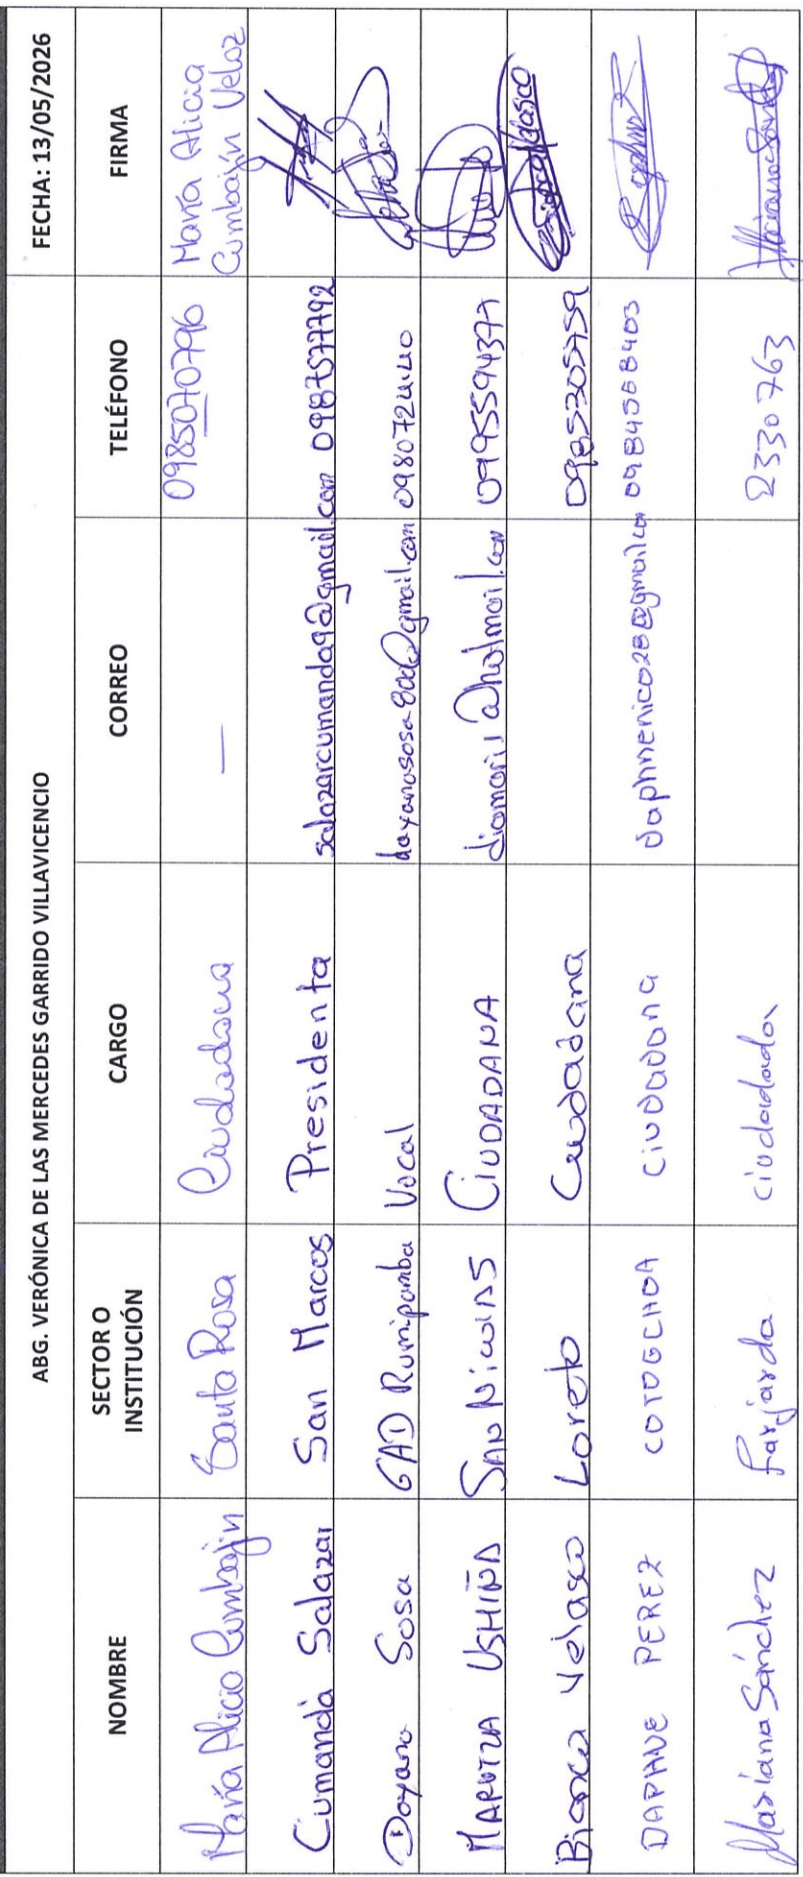 ABG. VERÓNICA DE LAS MERCEDES GARRIDO VILLAVICENCIO FECHA: 13/05/2026
NOMBRE SECTOR O INSTITUCIÓN CARGO CORREO TELÉFONO FIRMA
María Alicia Cumbajín Santa Rosa Ciudadana — 0985070796 María Alicia Cumbajín Veloz
Cumandá Salazar San Marcos Presidenta salazarcumanda9@gmail.com 0987577792
Dayana Sosa GAD Rumipamba Vocal
MARITZA USHIÑA SAN NICOLAS CIUDADANA 0995594377
Bianca Velasco Loreto Ciudadana 0985305759
DAPHNE PEREZ COTOGCHOA CIUDADANA daphnenico28@gmail.com 0984568403
Mariana Sánchez Farjarda ciudadada 2330763